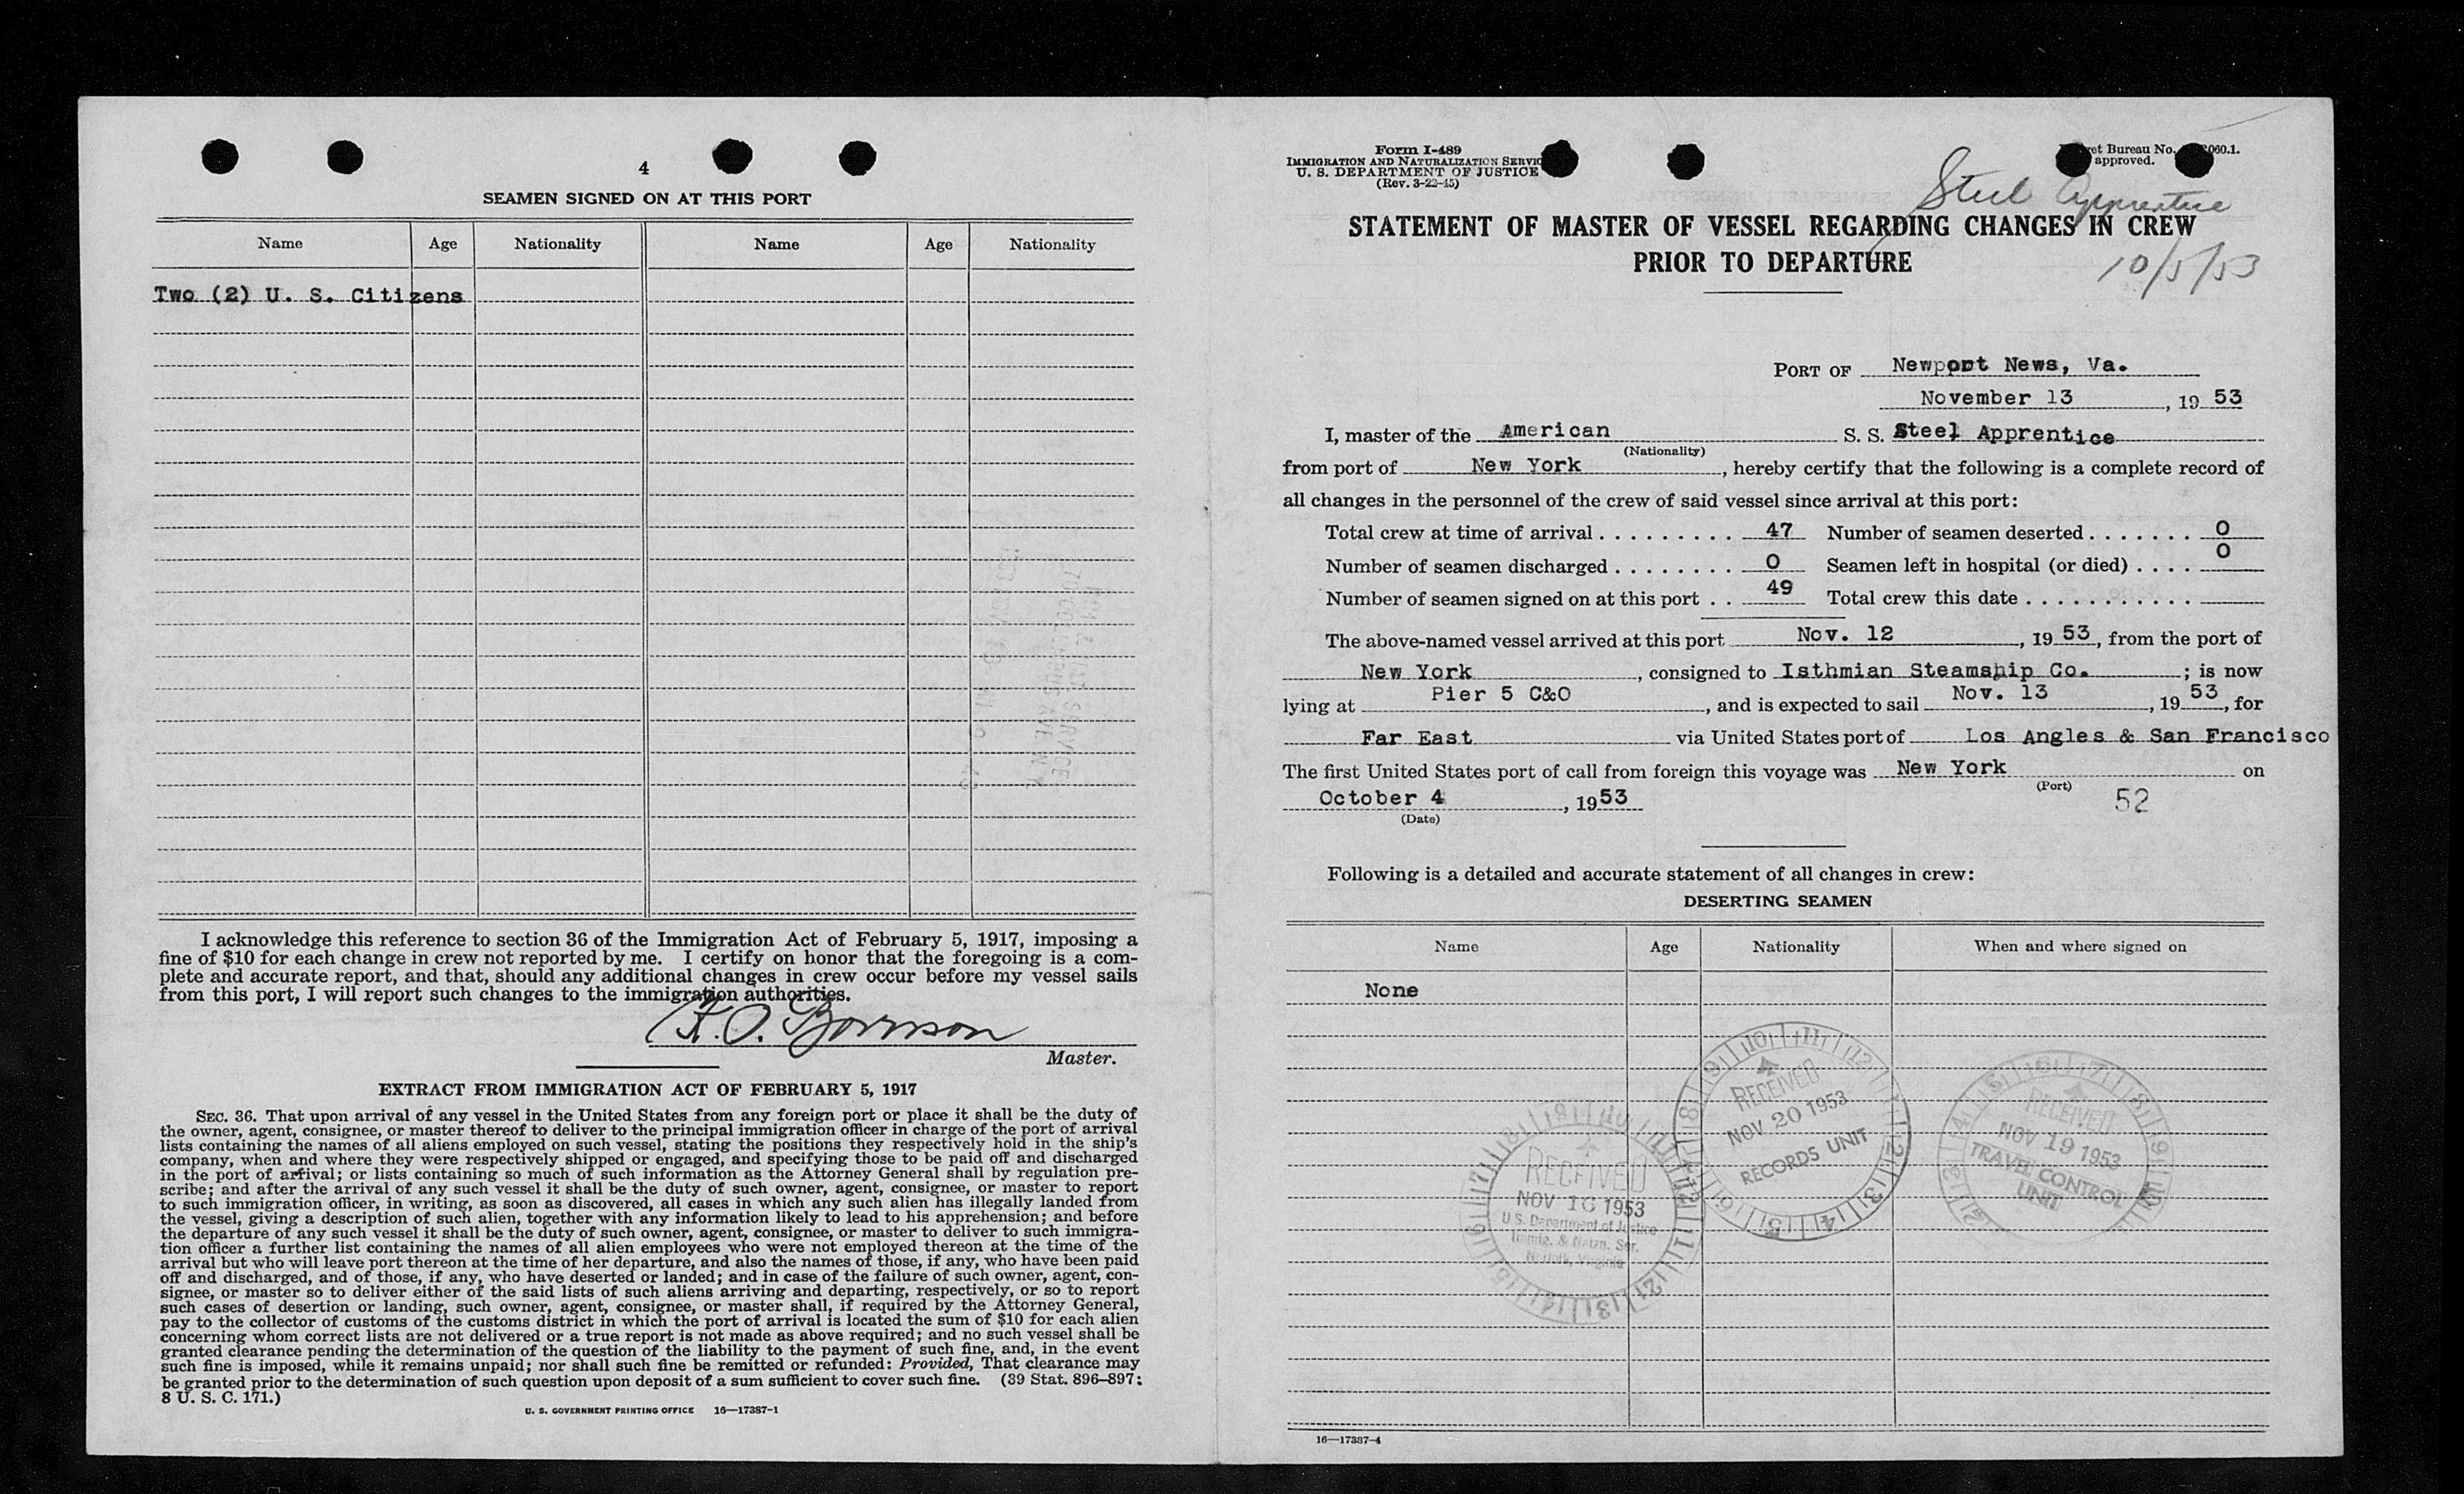 4
SEAMEN SIGNED ON AT THIS PORT
Name Age Nationality Name Age Nationality
Two (2) U. S. Citizens
I acknowledge this reference to section 36 of the Immigration Act of February 5, 1917, imposing a
fine of $10 for each change in crew not reported by me. I certify on honor that the foregoing is a com-
plete and accurate report, and that, should any additional changes in crew occur before my vessel sails
from this port, I will report such changes to the immigration authorities.
Master.
EXTRACT FROM IMMIGRATION ACT OF FEBRUARY 5, 1917
SEC. 36. That upon arrival of any vessel in the United States from any foreign port or place it shall be the duty of
the owner, agent, consignee, or master thereof to deliver to the principal immigration officer in charge of the port of arrival
lists containing the names of all aliens employed on such vessel, stating the positions they respectively hold in the ship's
company, when and where they were respectively shipped or engaged, and specifying those to be paid off and discharged
in the port of arrival; or lists containing so much of such information as the Attorney General shall by regulation pre-
scribe; and after the arrival of any such vessel it shall be the duty of such owner, agent, consignee, or master to report
to such immigration officer, in writing, as soon as discovered, all cases in which any such alien has illegally landed from
the vessel, giving a description of such alien, together with any information likely to lead to his apprehension; and before
the departure of any such vessel it shall be the duty of such owner, agent, consignee, or master to deliver to such immigra-
tion officer a further list containing the names of all alien employees who were not employed thereon at the time of the
arrival but who will leave port thereon at the time of her departure, and also the names of those, if any, who have been paid
off and discharged, and of those, if any, who have deserted or landed; and in case of the failure of such owner, agent, con-
signee, or master so to deliver either of the said lists of such aliens arriving and departing, respectively, or so to report
such cases of desertion or landing, such owner, agent, consignee, or master shall, if required by the Attorney General,
pay to the collector of customs of the customs district in which the port of arrival is located the sum of $10 for each alien
concerning whom correct lists are not delivered or a true report is not made as above required; and no such vessel shall be
granted clearance pending the determination of the question of the liability to the payment of such fine, and, in the event
such fine is imposed, while it remains unpaid; nor shall such fine be remitted or refunded: Provided, That clearance may
be granted prior to the determination of such question upon deposit of a sum sufficient to cover such fine. (39 Stat. 896–897;
8 U. S. C. 171.)
U. S. GOVERNMENT PRINTING OFFICE 16—17387-1
Form I-489
IMMIGRATION AND NATURALIZATION SERVIC
U. S. DEPARTMENT OF JUSTICE
(Rev. 3-22-45)
et Bureau No. 060.1.
approved.
Steel Apprentice
STATEMENT OF MASTER OF VESSEL REGARDING CHANGES IN CREW
PRIOR TO DEPARTURE
10/5/53
PORT OF Newport News, Va.
November 13, 19 53
I, master of the American S. S. Steel Apprentice
(Nationality)
from port of New York, hereby certify that the following is a complete record of
all changes in the personnel of the crew of said vessel since arrival at this port:
Total crew at time of arrival . . . . . . . . . 47 Number of seamen deserted . . . . . . . 0
Number of seamen discharged . . . . . . . . 0 Seamen left in hospital (or died) . . . . 0
Number of seamen signed on at this port . . 49 Total crew this date . . . . . . . . . . .
The above-named vessel arrived at this port Nov. 12, 19 53, from the port of
New York, consigned to Isthmian Steamship Co.; is now
lying at Pier 5 C&O, and is expected to sail Nov. 13, 19 53, for
Far East via United States port of Los Angles & San Francisco
The first United States port of call from foreign this voyage was New York on
(Port)
October 4, 1953
(Date)
52
Following is a detailed and accurate statement of all changes in crew:
DESERTING SEAMEN
Name Age Nationality When and where signed on
None
RECEIVED
NOV 20 1953
RECORDS UNIT
RECEIVED
NOV 19 1953
TRAVEL CONTROL
UNIT
RECEIVED
NOV 16 1953
U.S. Department of Justice
Immig. & Natzn. Ser.
Norfolk, Virginia
16—17387-4